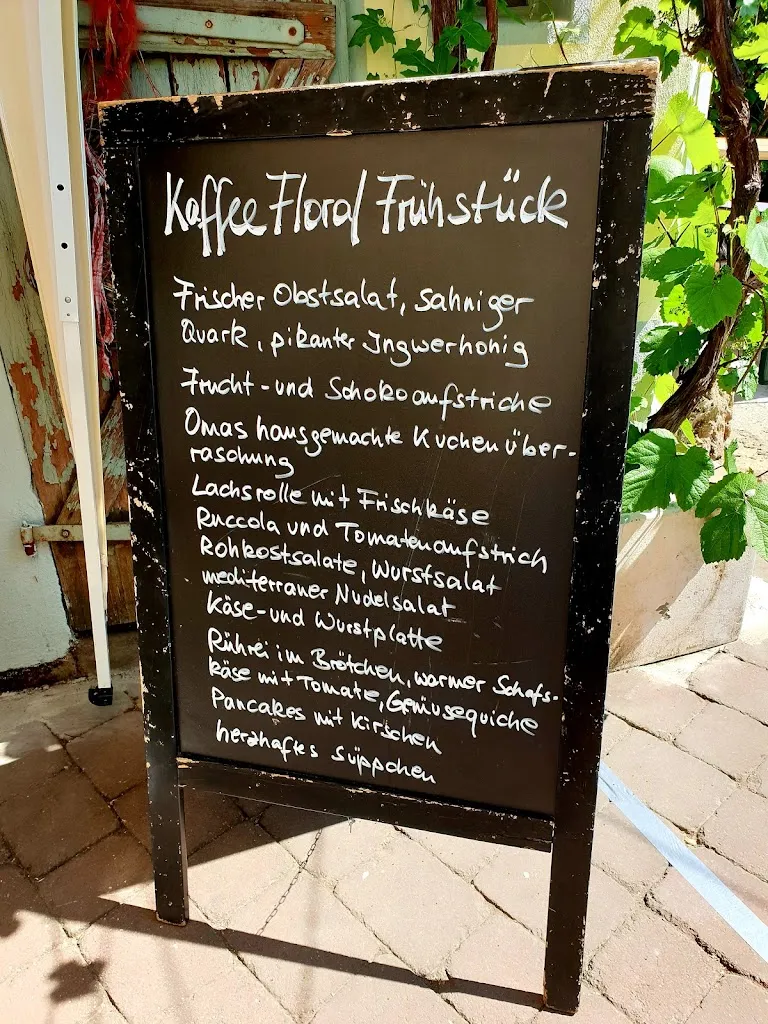 Kaffee Floral Frühstück
Frischer Obstsalat, sahniger
Quark, pikanter Ingwerhonig
Frucht- und Schokoaufstriche
Omas hausgemachte Kuchenüber-
raschung
Lachsrolle mit Frischkäse
Ruccola und Tomatenaufstrich
Rohkostsalate, Wurstsalat
mediterraner Nudelsalat
Käse- und Wurstplatte
Rührei im Brötchen, warmer Schafs-
käse mit Tomate, Gemüsequiche
Pancakes mit Kirschen
herzhaftes Süppchen